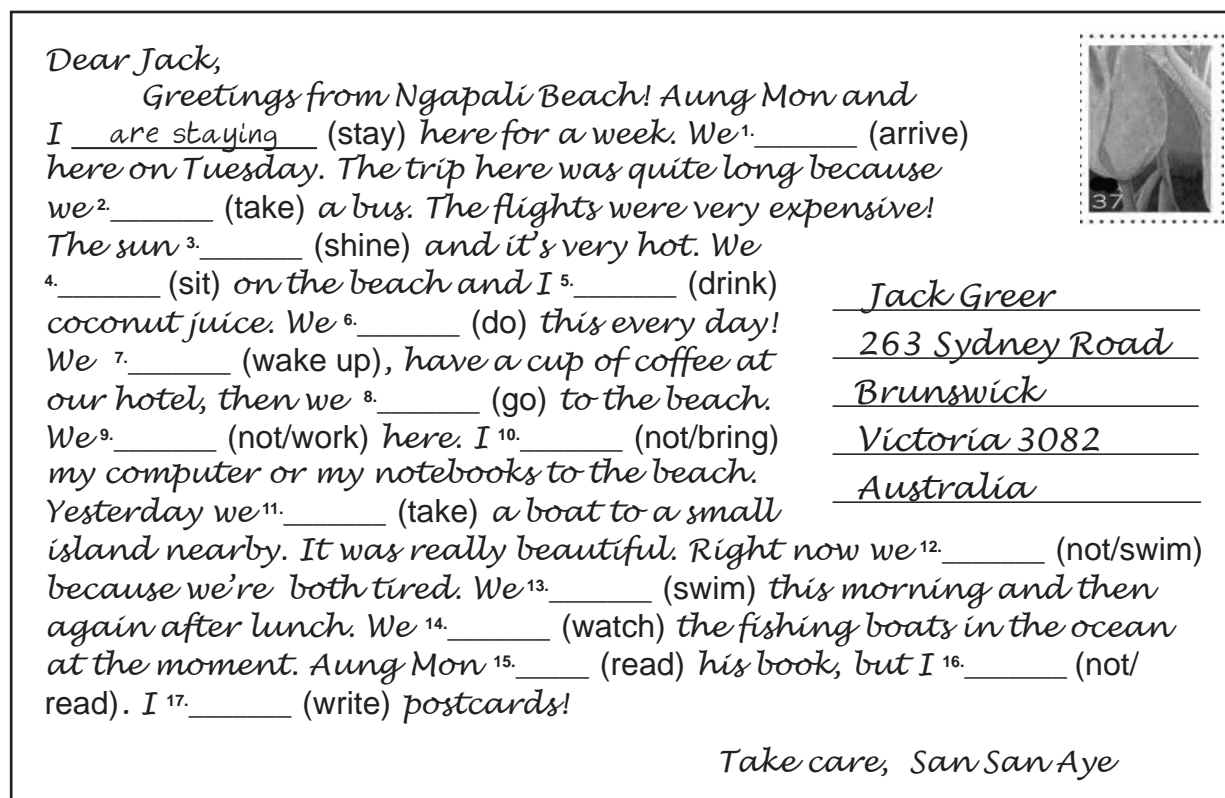 Dear Jack,
Greetings from Ngapali Beach! Aung Mon and
I are staying (stay) here for a week. We 1._______ (arrive)
here on Tuesday. The trip here was quite long because
we 2._______ (take) a bus. The flights were very expensive!
The sun 3._______ (shine) and it's very hot. We
4._______ (sit) on the beach and I 5._______ (drink)
coconut juice. We 6._______ (do) this every day!
We 7._______ (wake up), have a cup of coffee at
our hotel, then we 8._______ (go) to the beach.
We 9._______ (not/work) here. I 10._______ (not/bring)
my computer or my notebooks to the beach.
Yesterday we 11._______ (take) a boat to a small
island nearby. It was really beautiful. Right now we 12._______ (not/swim)
because we're both tired. We 13._______ (swim) this morning and then
again after lunch. We 14._______ (watch) the fishing boats in the ocean
at the moment. Aung Mon 15._____ (read) his book, but I 16._______ (not/
read). I 17._______ (write) postcards!
Take care, San San Aye
37
Jack Greer
263 Sydney Road
Brunswick
Victoria 3082
Australia